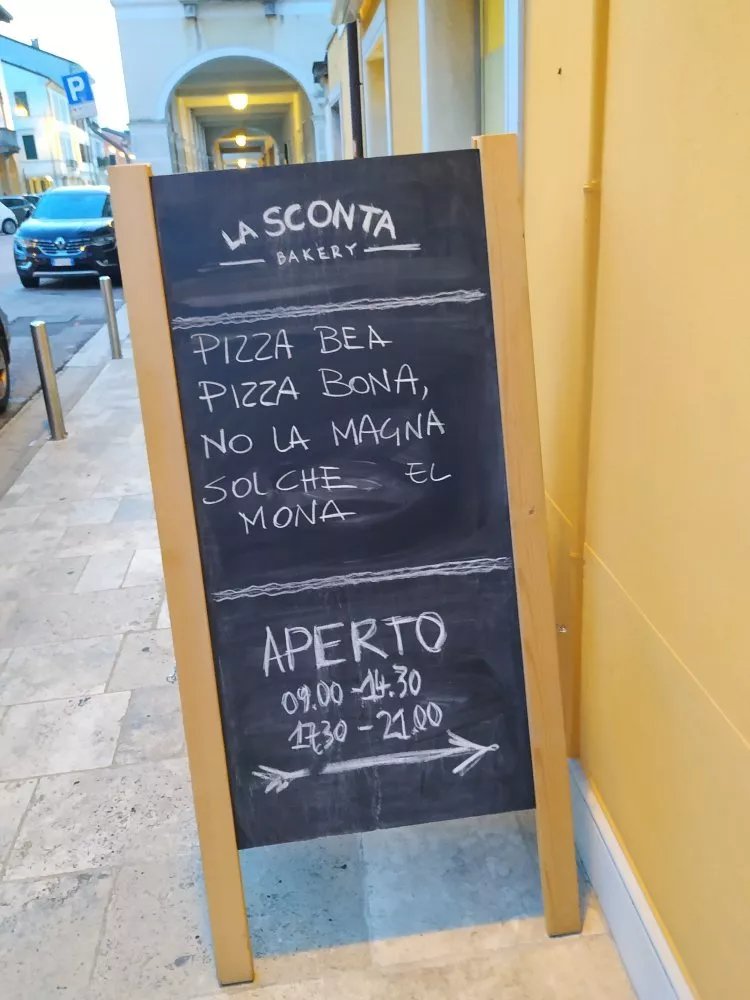 P
LA SCONTA
BAKERY
PIZZA BEA
PIZZA BONA,
NO LA MAGNA
SOL CHE EL
MONA
APERTO
09.00 - 14.30
17.30 - 21.00